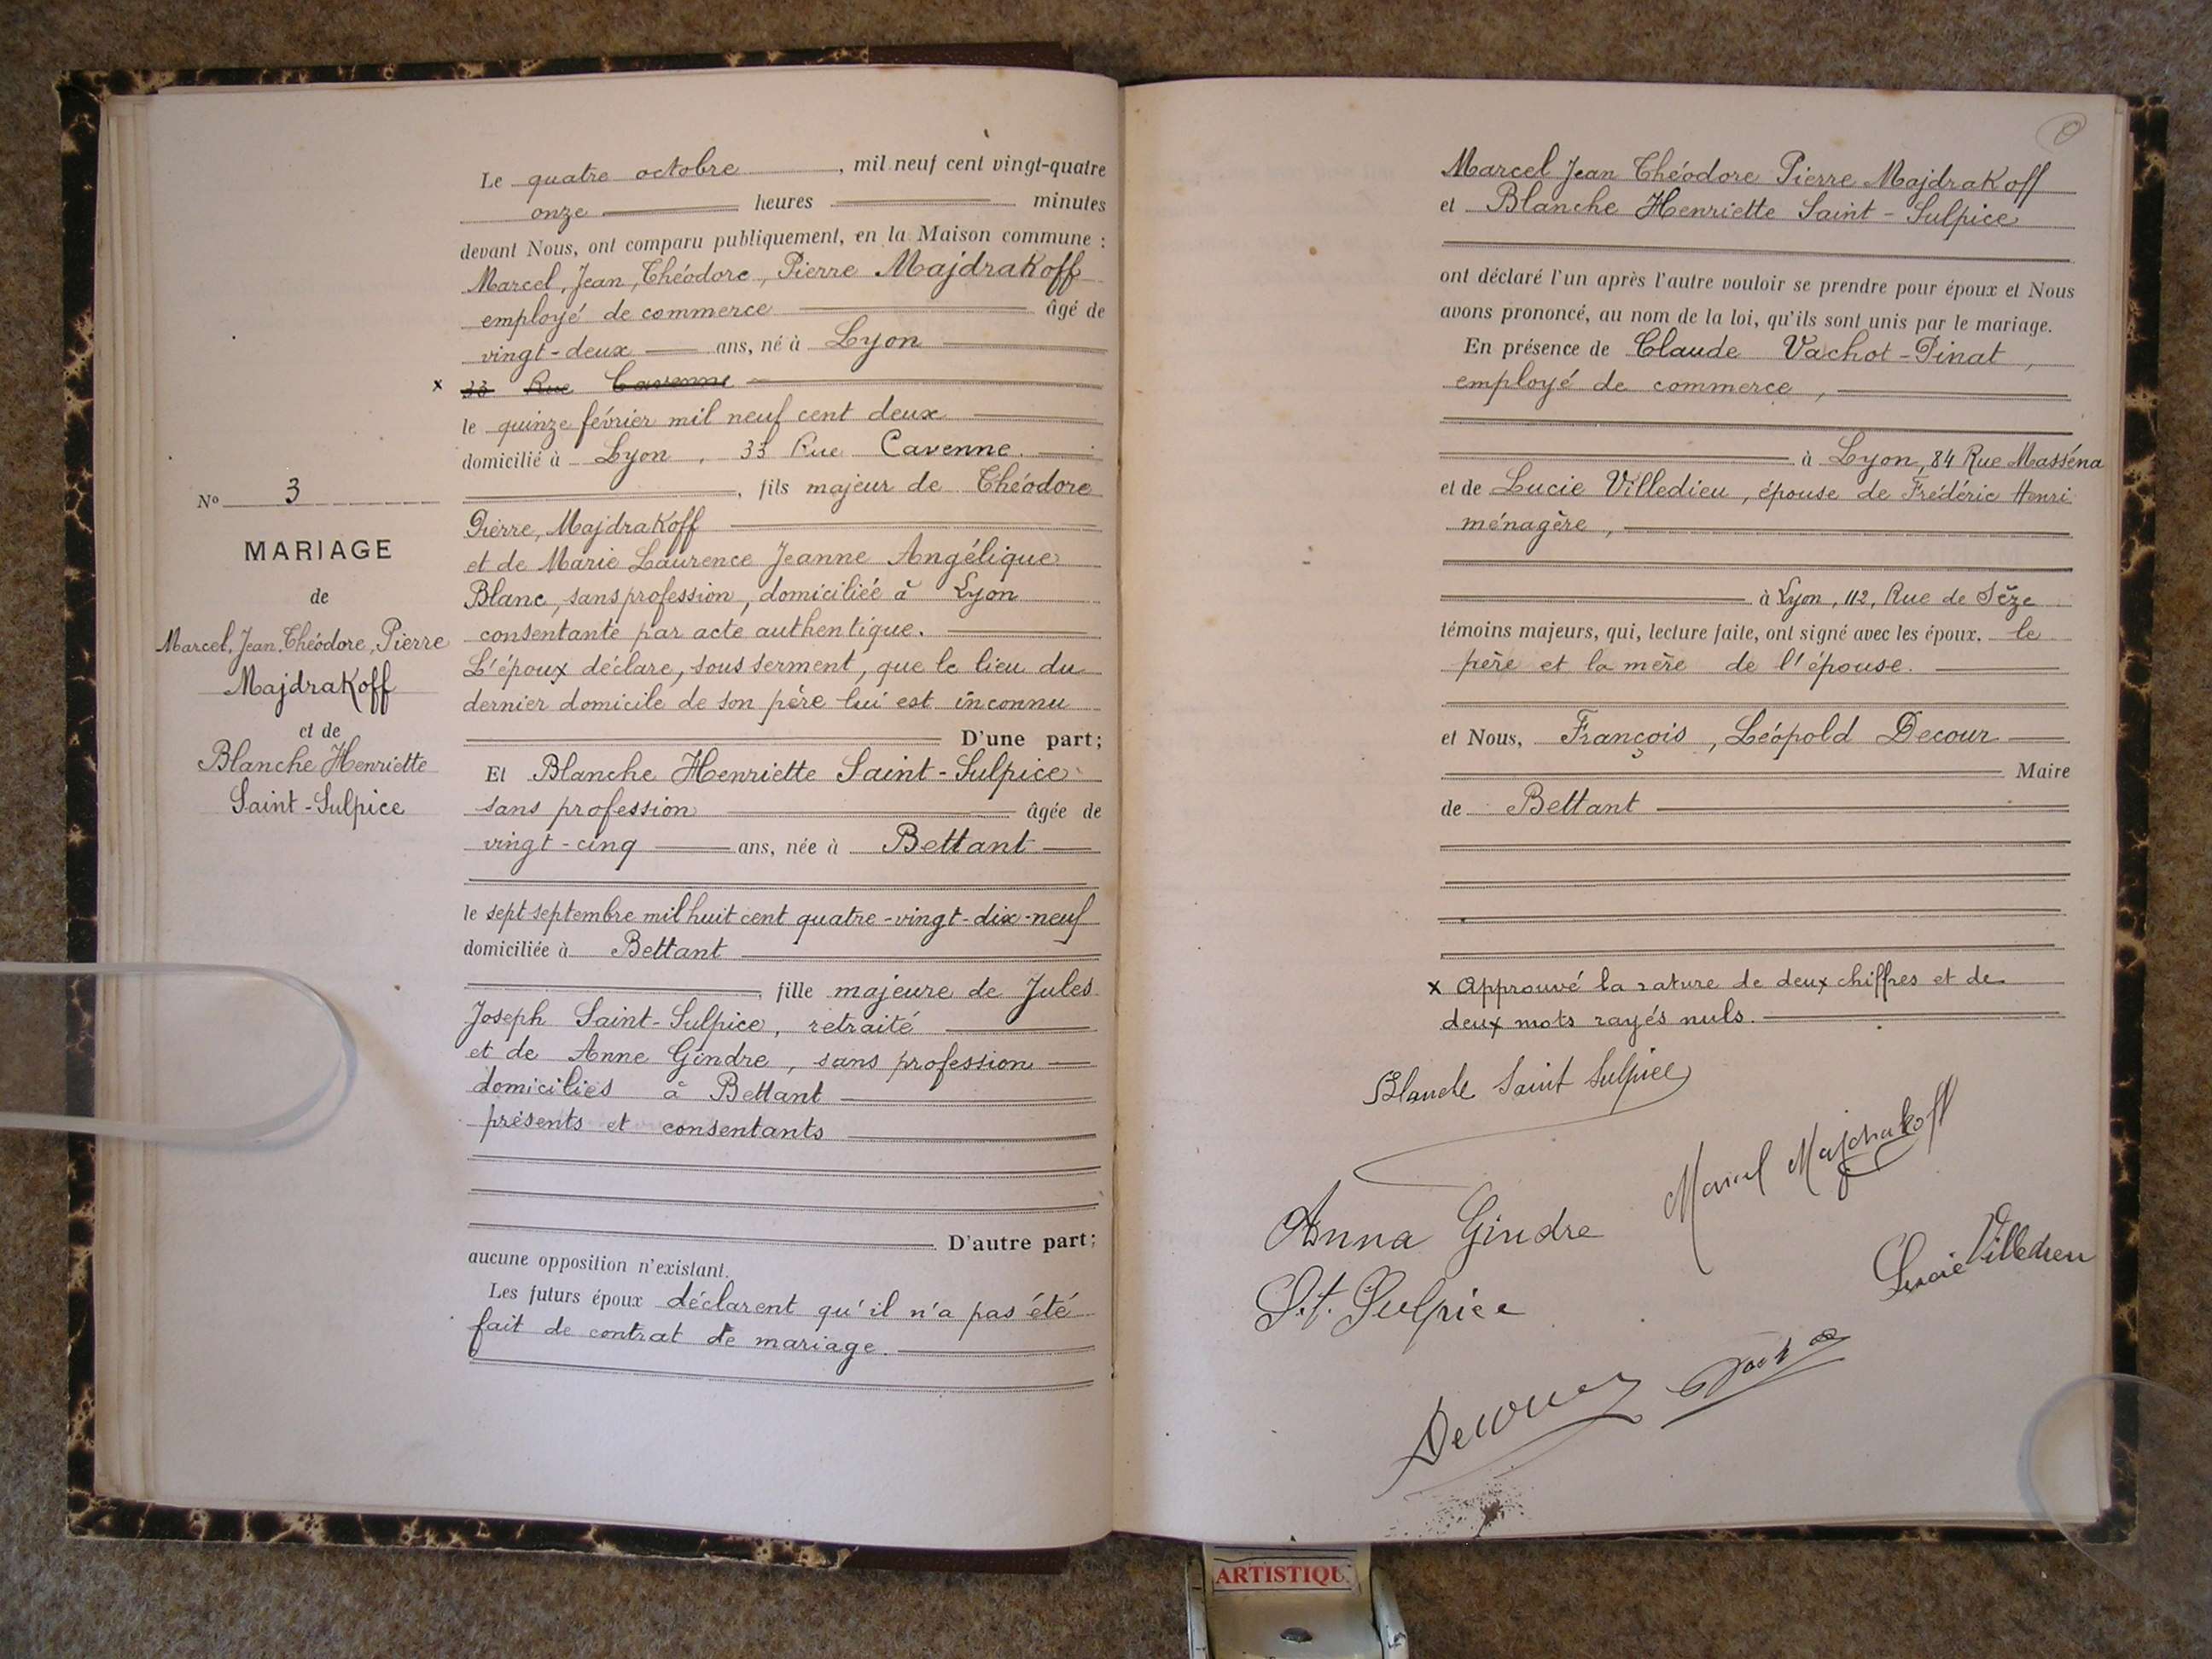 Nº 3
MARIAGE
de
Marcel, Jean, Théodore, Pierre
Majdrakoff
et de
Blanche Henriette
Saint-Sulpice
Le quatre octobre, mil neuf cent vingt-quatre
onze heures minutes
devant Nous, ont comparu publiquement, en la Maison commune :
Marcel, Jean, Théodore, Pierre Majdrakoff
employé de commerce âgé de
vingt-deux ans, né à Lyon
x 33 Rue Cavenne
le quinze février mil neuf cent deux
domicilié à Lyon, 33 Rue Cavenne.
, fils majeur de Théodore
Pierre, Majdrakoff
et de Marie Laurence Jeanne Angélique
Blanc, sans profession, domiciliée à Lyon
consentante par acte authentique.
L'époux déclare, sous serment, que le lieu du
dernier domicile de son père lui est inconnu
D'une part;
Et Blanche Henriette Saint-Sulpice
sans profession âgée de
vingt-cinq ans, née à Bettant
le sept septembre mil huit cent quatre-vingt-dix-neuf
domiciliée à Bettant
, fille majeure de Jules
Joseph Saint-Sulpice, retraité
et de Anne Gindre, sans profession
domiciliés à Bettant
présents et consentants
D'autre part;
aucune opposition n'existant.
Les futurs époux déclarent qu'il n'a pas été
fait de contrat de mariage.
Marcel Jean Théodore Pierre Majdrakoff
et Blanche Henriette Saint-Sulpice
ont déclaré l'un après l'autre vouloir se prendre pour époux et Nous
avons prononcé, au nom de la loi, qu'ils sont unis par le mariage.
En présence de Claude Vachot-Pinat,
employé de commerce,
à Lyon, 84 Rue Masséna
et de Lucie Villedieu, épouse de Frédéric Henri
ménagère,
à Lyon, 112, Rue de Sèze
témoins majeurs, qui, lecture faite, ont signé avec les époux. le
père et la mère de l'épouse.
et Nous, François, Léopold Decour
Maire
de Bettant
x Approuvé la rature de deux chiffres et de
deux mots rayés nuls.
Blanche Saint Sulpice
Marcel Majdrakoff
Anna Gindre
Lucie Villedieu
St. Sulpice
Decour
ARTISTIQU